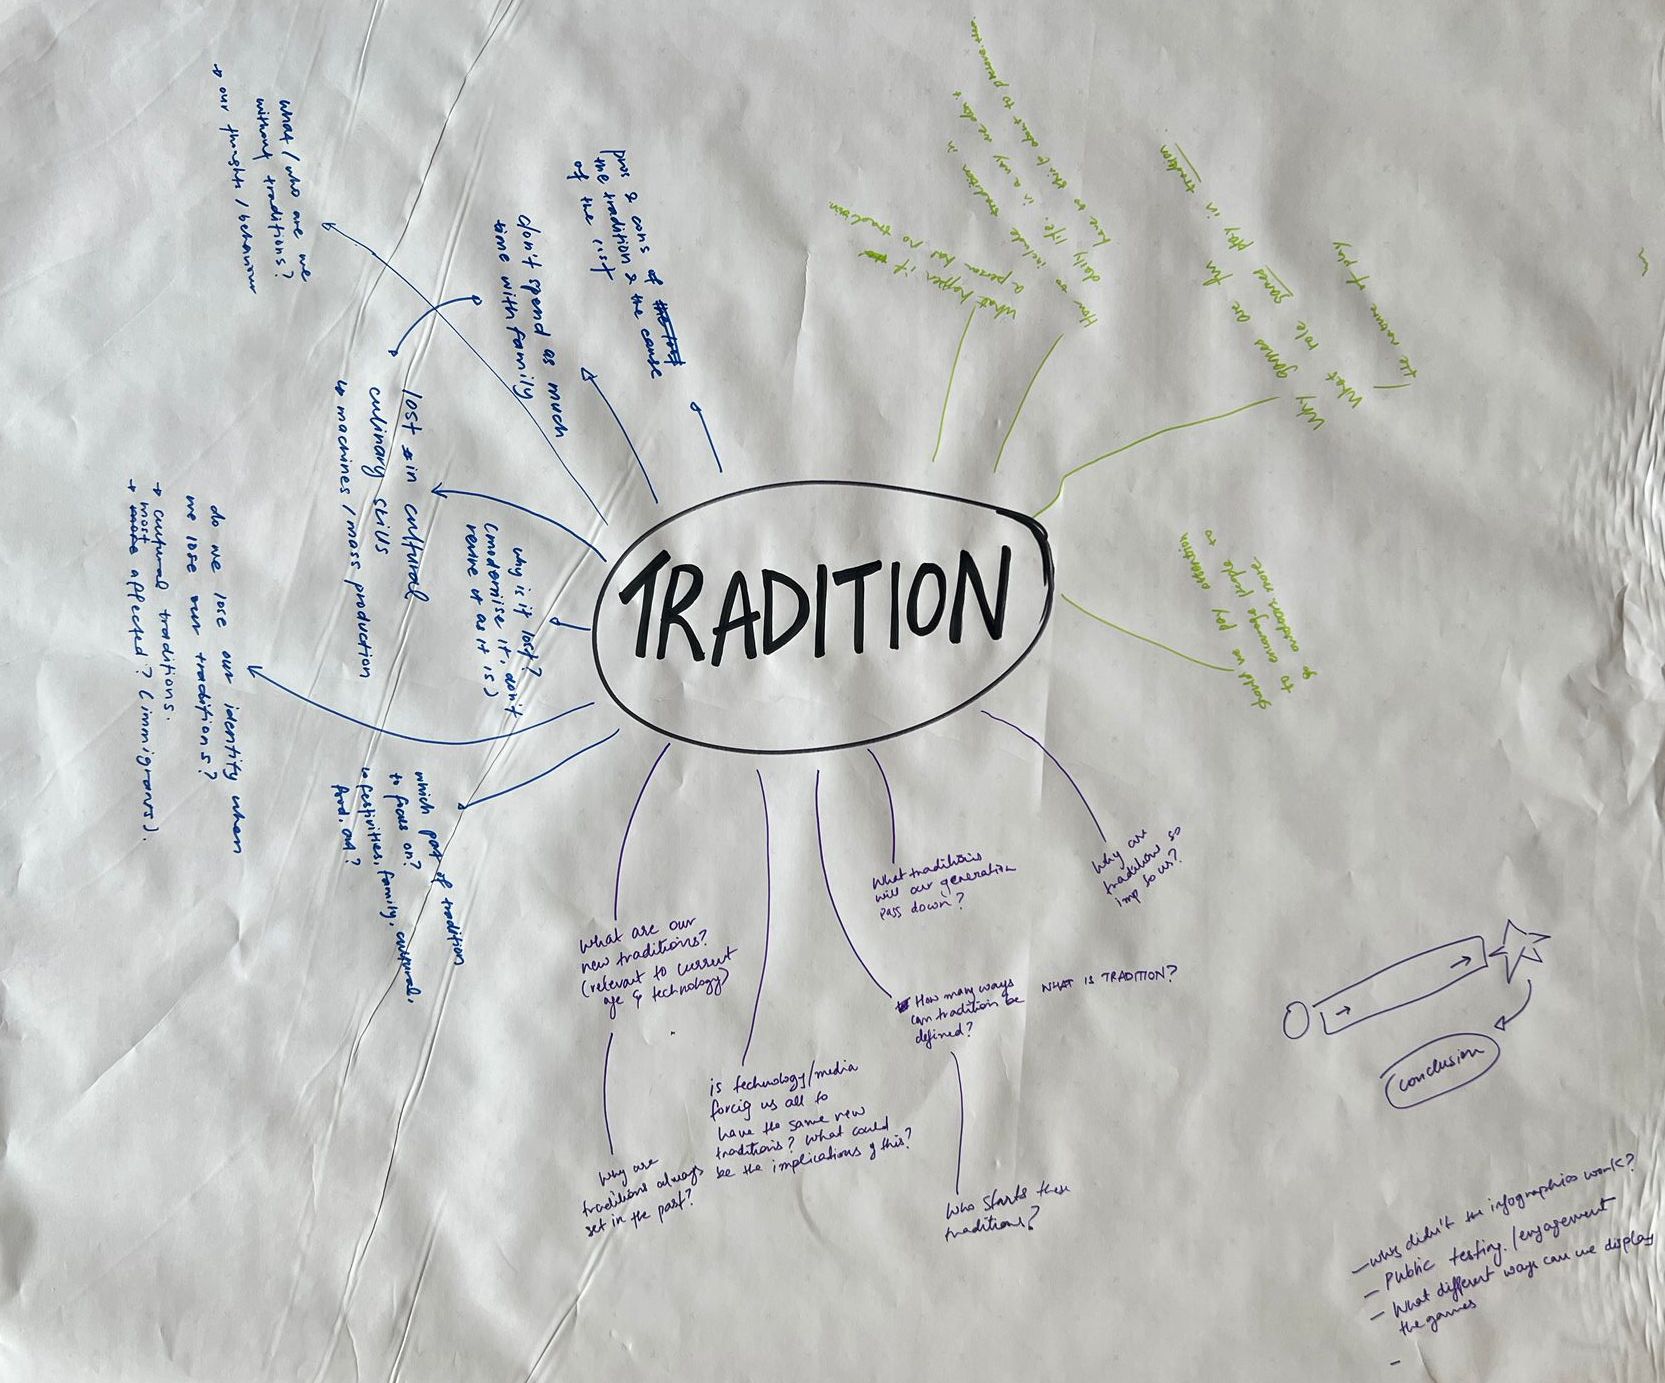 TRADITION
what / who are we
without traditions?
→ our thoughts / behaviour
pros & cons of the lost
the tradition & the cause
of the list
don't spend as much
time with family
lost in cultural
culinary skills
↳ machines / mass production
why is it lost?
(modernise it, don't
revive it as it is)
do we lose our identity when
we lose our traditions?
→ cultural traditions.
→ more most affected? (immigrants).
which part of tradition
to focus on?
↳ festivities, family, cultural,
food, art?
What happen if
a person has no tradition
How to include tradition in
daily life. in a way we don't
have to think about to preserve them.
Why games are fun
What role games play in tradition
The nature of play
should we pay attention
to encourage people to
go outdoors more
Why are
traditions so
imp to us?
What traditions
will our generation
pass down?
How many ways
can tradition be
defined?
WHAT IS TRADITION?
Who starts these
traditions?
is technology/media
forcig us all to
have the same new
traditions? What could
be the implications of this?
What are our
new traditions?
(relevant to current
age & technology)
Why are
traditions always
set in the past?
conclusion
– Why didn't the infographics work?
– Public testing / engagement
– What different ways can we display
the games
–